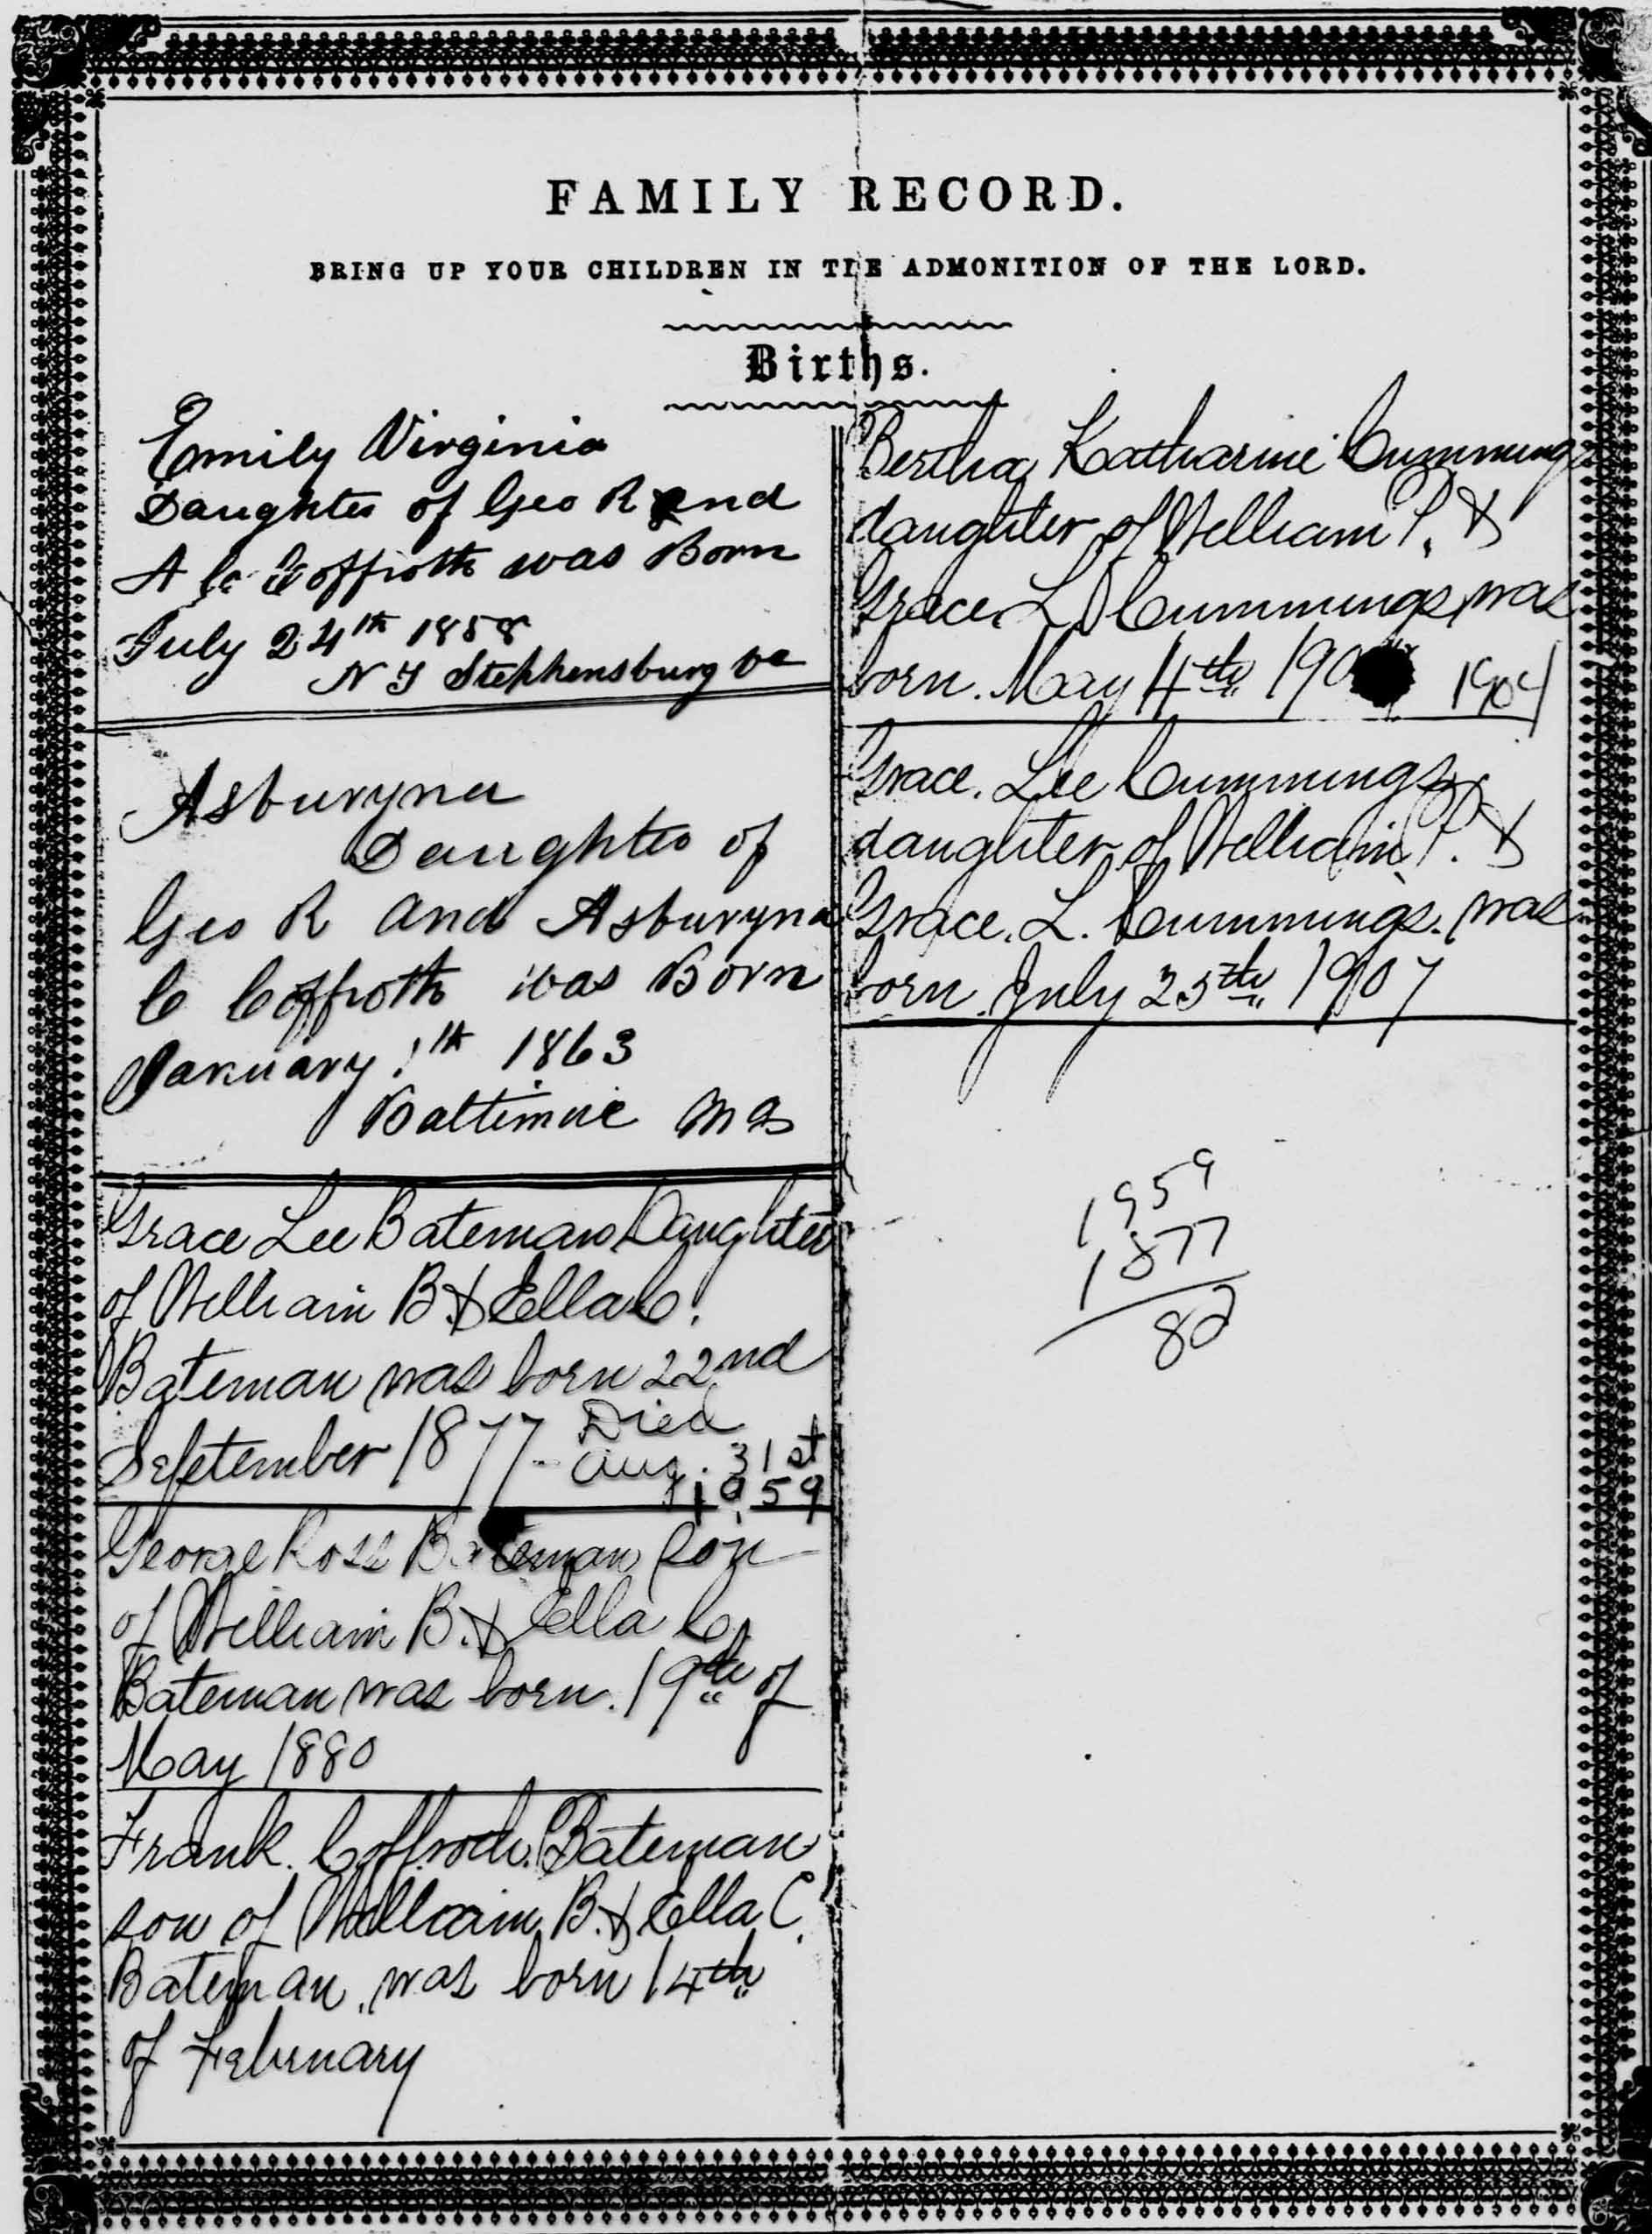 FAMILY RECORD.
BRING UP YOUR CHILDREN IN THE ADMONITION OF THE LORD.
Births.
Emily Virginia
Daughter of Geo R and
A C Coffroth was Born
July 24th 1858
Stephensburg Va
Asburyna
Daughter of
Geo R and Asburyna
C Coffroth was Born
January 1th 1863
Baltimore Md
Grace Lee Bateman Daughter
of William B & Ella C.
Bateman was born 22nd
September 1877 - Died
Aug. 31st
1959
George Ross Bateman son
of William B. & Ella C.
Bateman was born. 19th of
May 1880
Frank. Coffroth. Bateman
son of William B. & Ella C.
Bateman, was born 14th
of February
Bertha Katharine Cumming
daughter of William P. &
Grace L Cummings was
born. May 4th 190 1904
Grace. Lee Cummings
daughter of William P. &
Grace. L. Cummings. was
born July 25th 1907
1959
1877
82